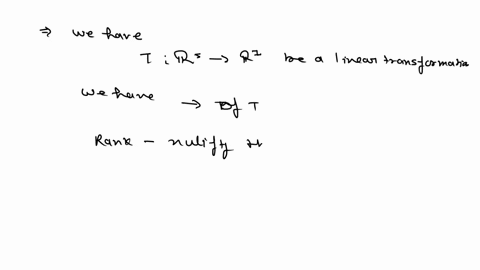 ⇒ we have
T : ℝ⁵ → ℝ⁷ be a linear transformatio
we have → of T
Rank - nulifty th